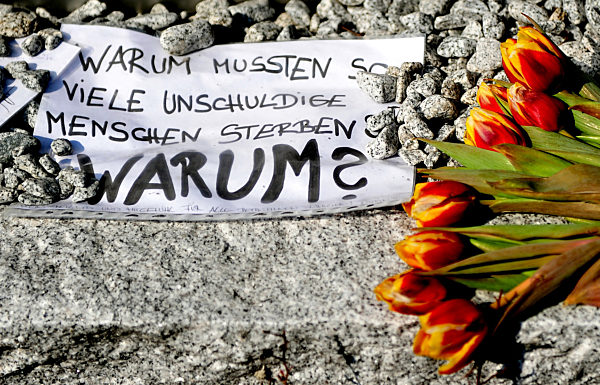 WARUM MUSSTEN SO
VIELE UNSCHULDIGE
MENSCHEN STERBEN?
WARUM?